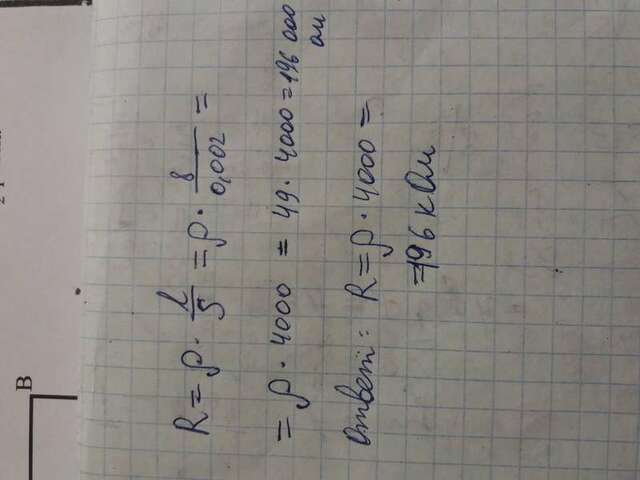 B
R = ρ · l/S = ρ · 8/0,002 =
= ρ · 4000 = 49 · 4000 = 196 000
ом
Ответ: R = ρ · 4000 =
= 196 кОм